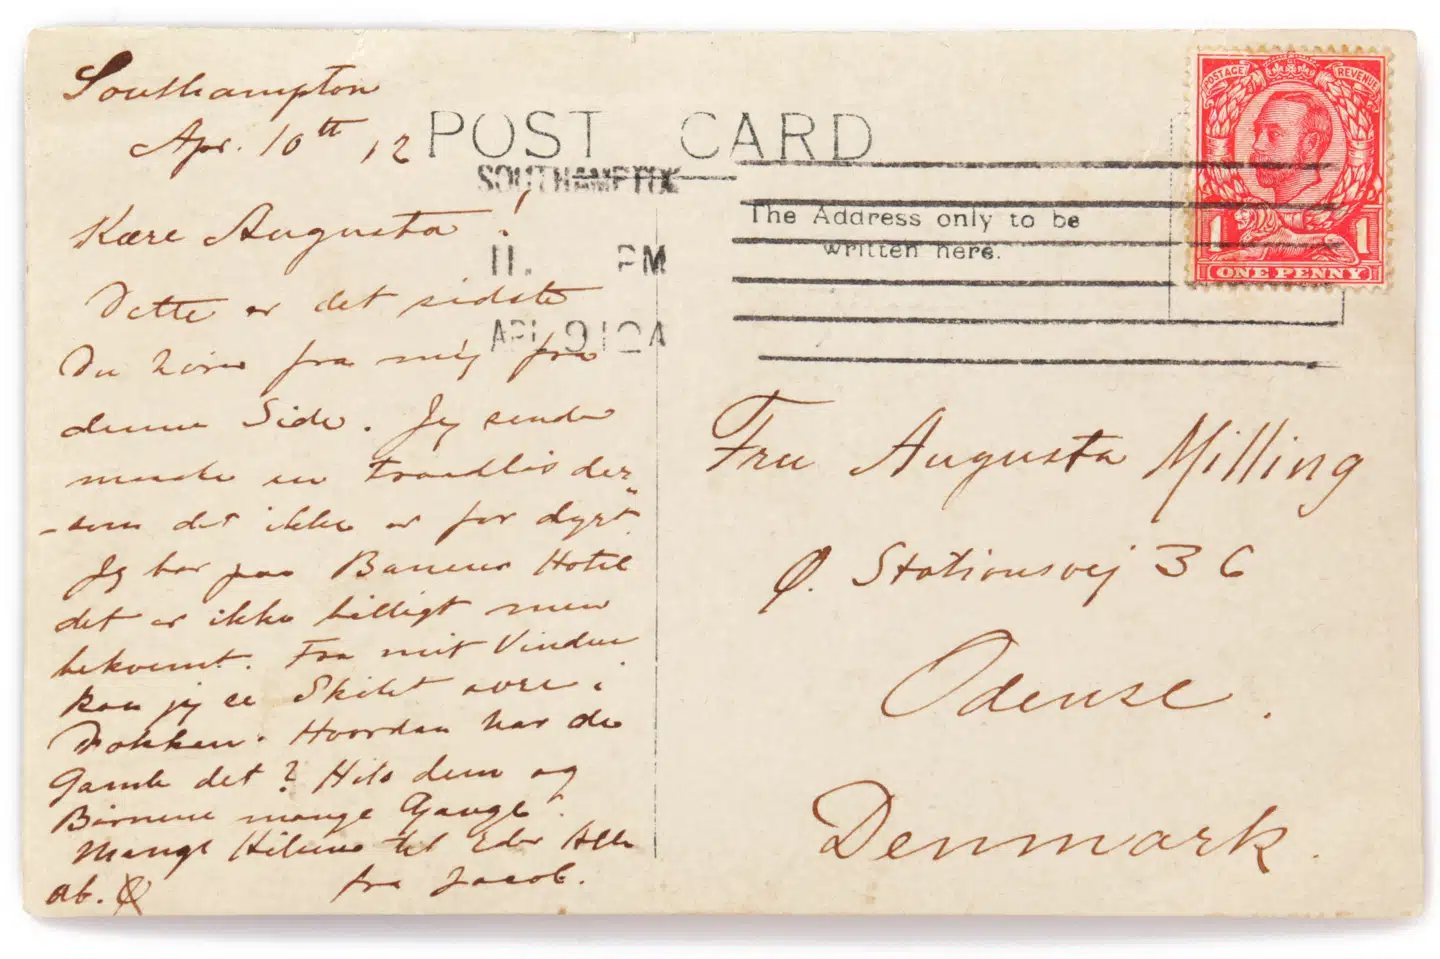 Southampton
Apr. 10th 12
Kære Augusta!
Dette er det sidste
Du hører fra mig fra
denne Side. Jeg sender
maaske en Traadløs der-
-som det ikke er for dyrt"
Jeg bor paa Banens Hotel
det er ikke billigt men
bekvemt. Fra mit Vindue
kan jeg se Skibet være i
Dokken. Hvordan har de
Gamle det? Hils dem og
Børnene mange Gange.
Mange Hilsener til Eder Alle
fra Jacob.
POST CARD
SOUTHAMPTON
11. PM
AP 9 12 A
The Address only to be
written here.
POSTAGE REVENUE
1 1
ONE PENNY
Fru Augusta Milling
Ø. Stationsvej 36
Odense.
Denmark.